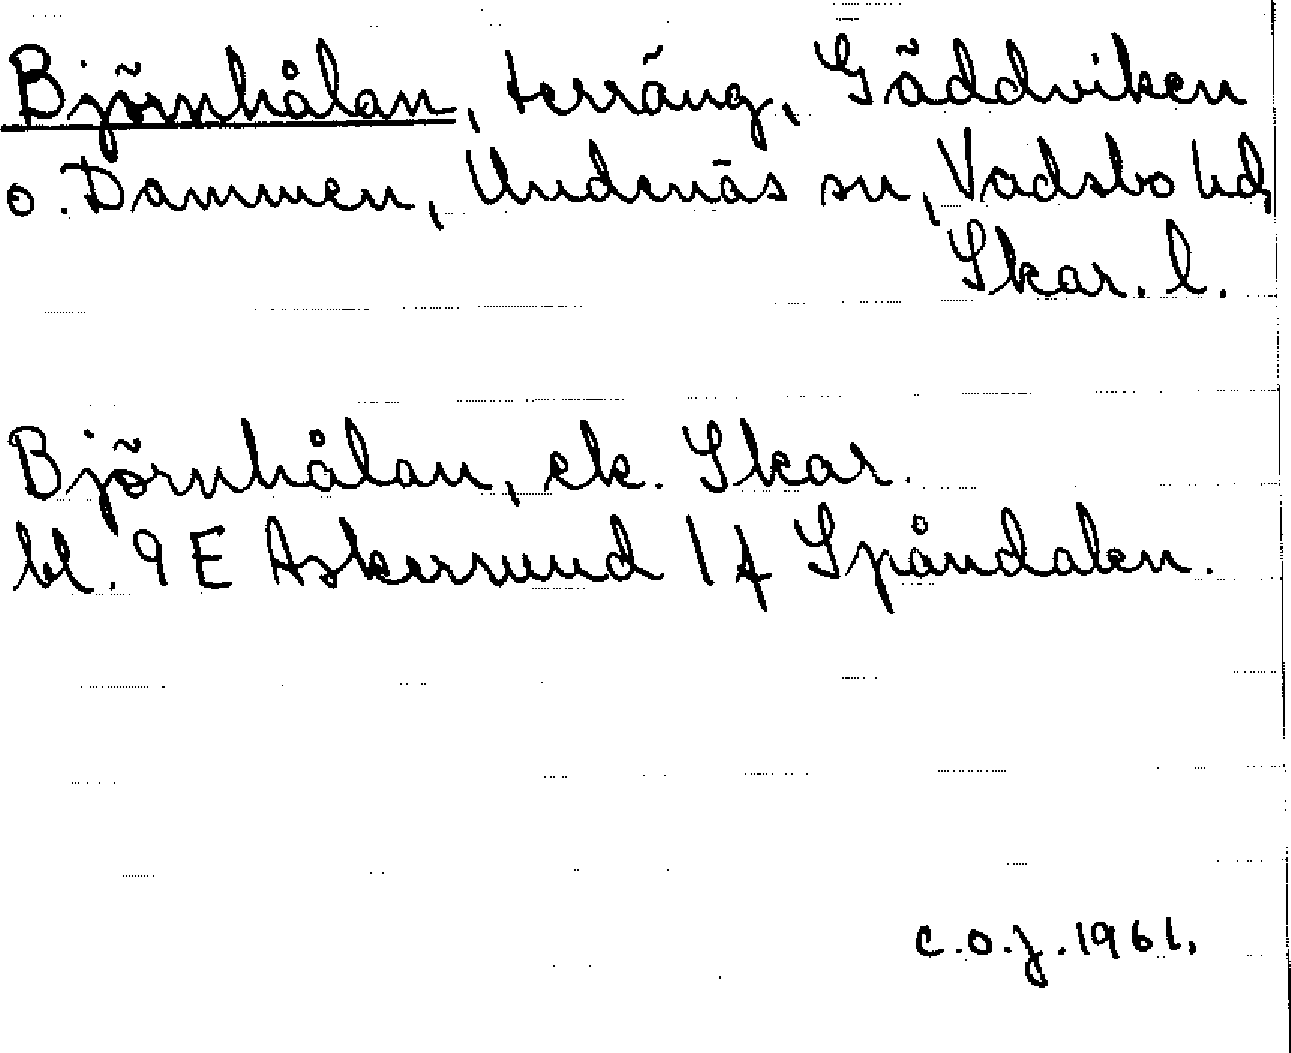 Björnhålan, terräng, Gäddviken
o. Dammen, Undenäs sn, Vadsbo hd,
Skar. l.
Björnhålan, ek. Skar.
bl. 9 E Askersund 1 f Spåndalen.
C.O.J. 1961.